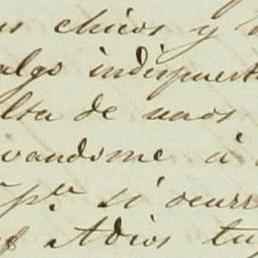 chicos y
algo indispuest
lta de unos
vandome á
pª si ocurr
Adios tu